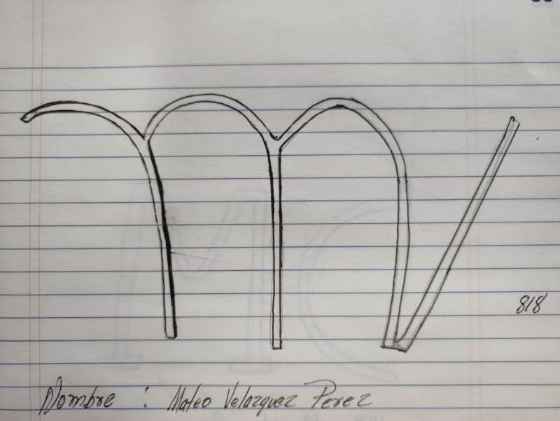 mv
818
Nombre : Mateo Velazquez Perez